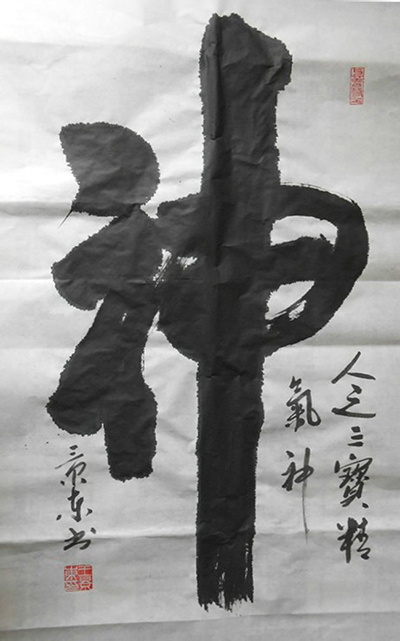 神
人之三寶精
氣神
景东书